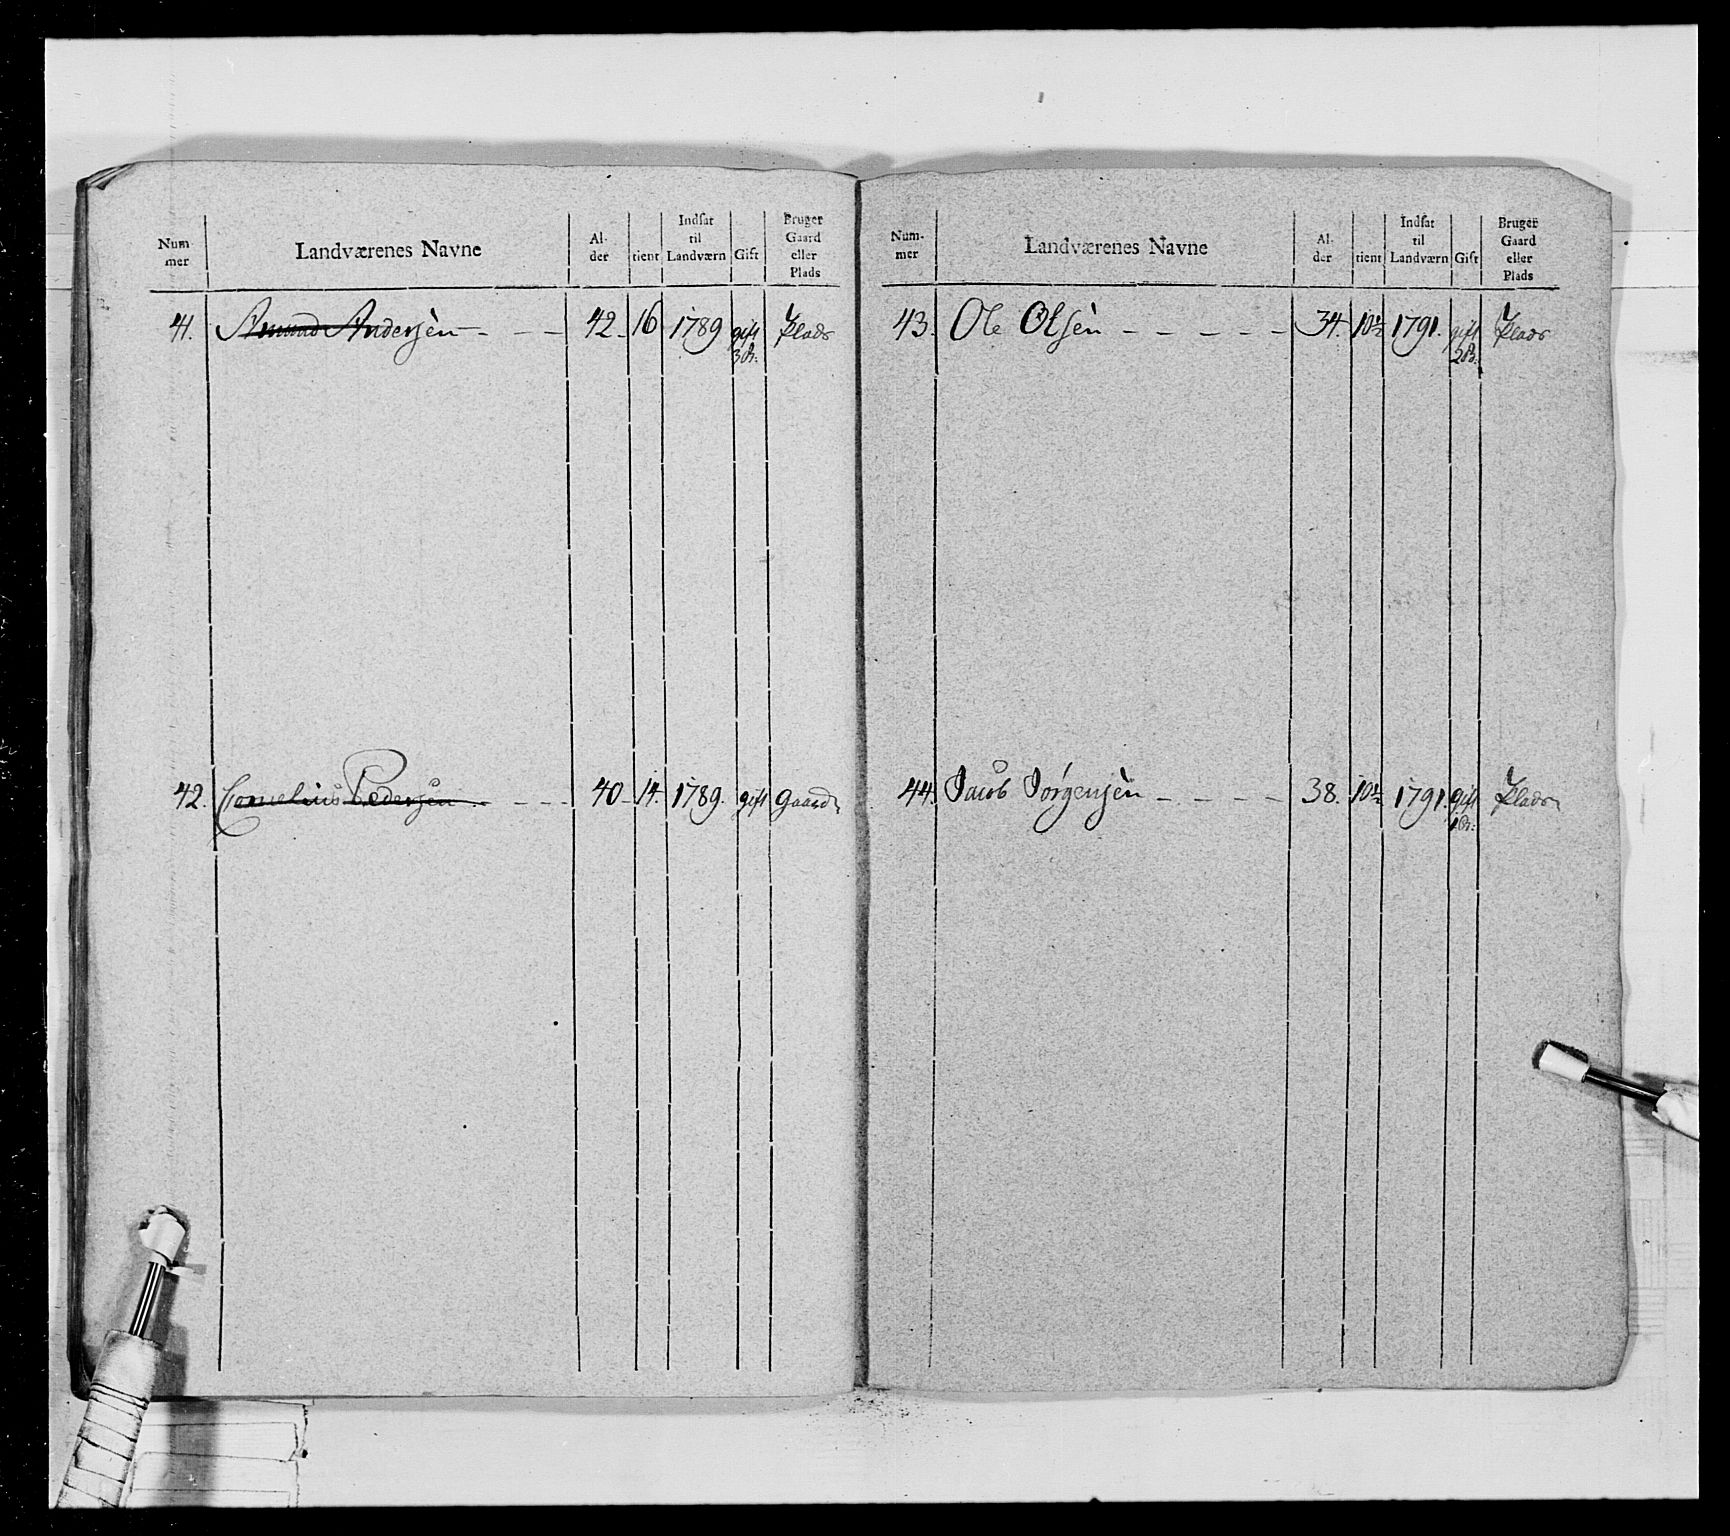 Num- mer | Landværenes Navne | Al- der | tient | Indsat til Landværn | Gift | Bruger Gaard eller Plads
41. Amund Andersen - - - 42. 16 1789 gift Plads
3 B:
42. Cornelius Pedersen - - - 40. 14. 1789. gift Gaard
Num- mer | Landværenes Navne | Al- der | tient | Indsat til Landværn | Gift | Bruger Gaard eller Plads
43. Ole Olsen - - - - - 34. 10½ 1791. gift Plads
2 B:
44. Jacob Jørgensen - - - - 38. 10½ 1791. gift Plads
1 B: